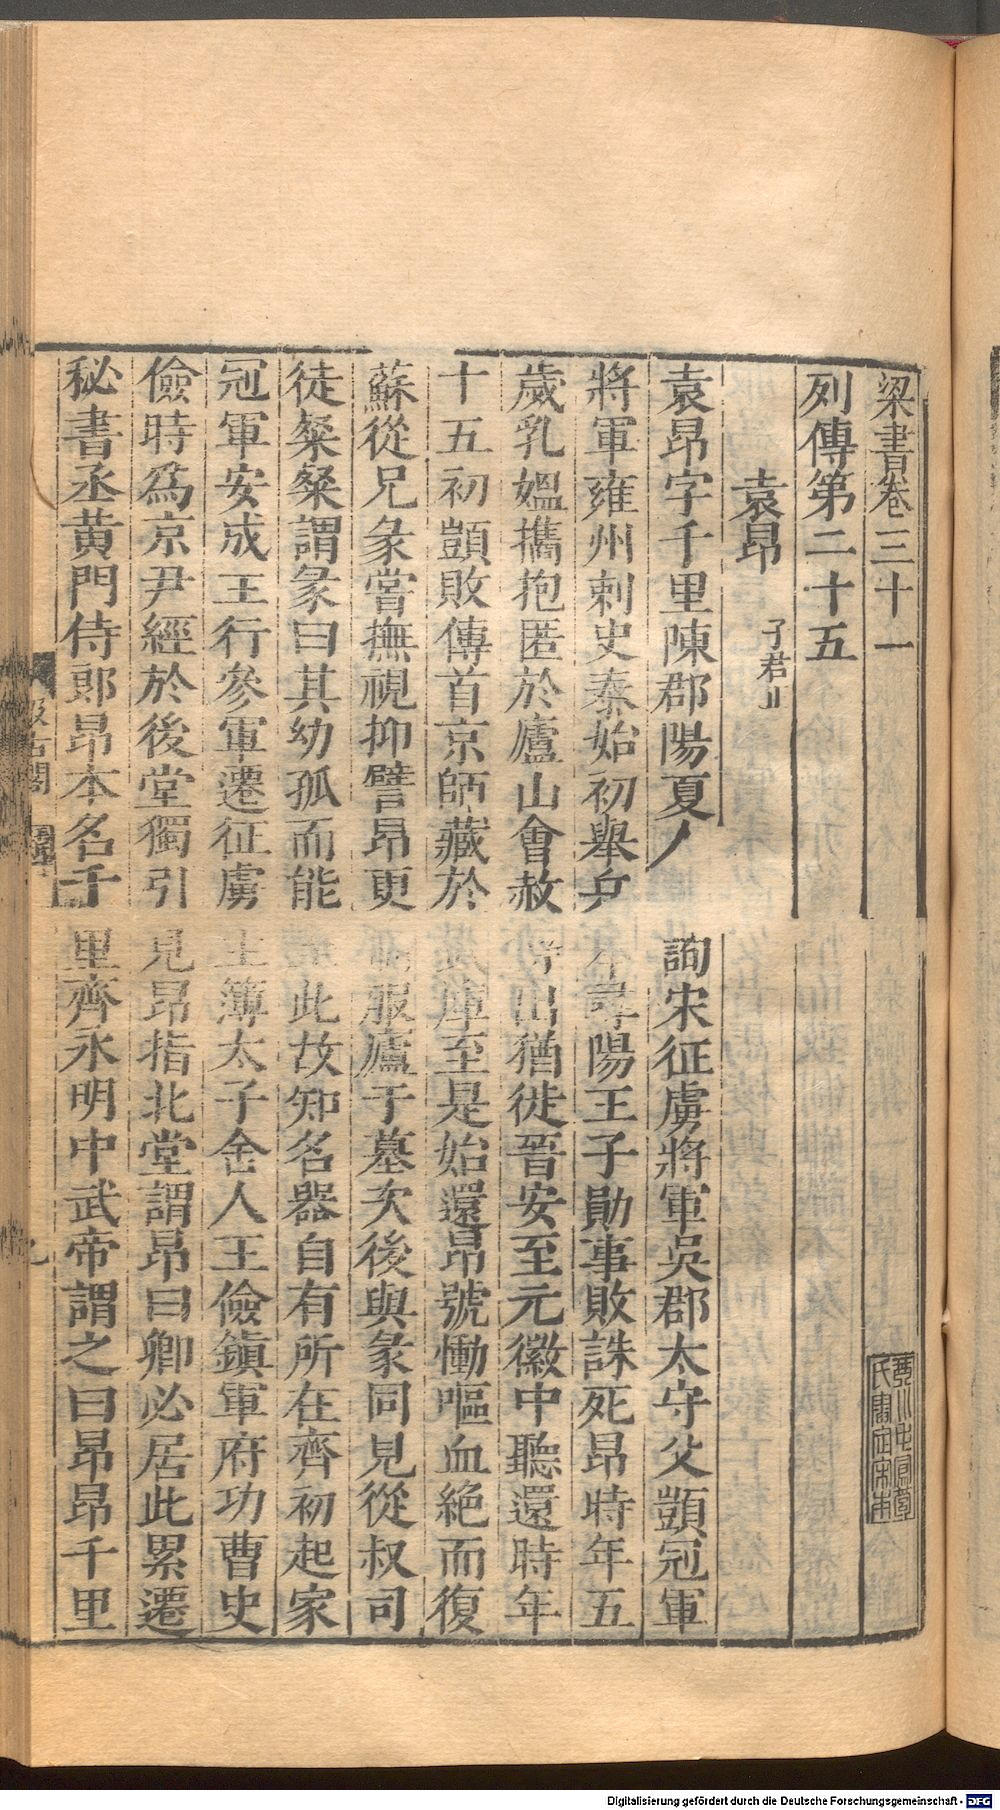 梁書卷三十一
列傳第二十五
袁昂 子君
袁昂字千里陳郡陽夏 詢宋征虜將軍吳郡太守父顗冠軍
將軍雍州刺史泰始初舉兵 尋陽王子勛事敗誅死昂時年五
歲乳媼攜抱匿於廬山會赦 出猶徙晉安至元徽中聽還時年
十五初顗敗傳首京師藏於 庫至是始還昂號慟嘔血絶而復
蘇從兄彖嘗撫視抑譬昂更 服廬于墓次後與彖同見從叔司
徒粲粲謂彖曰其幼孤而能 此故知名器自有所在齊初起家
冠軍安成王行參軍遷征虜主簿太子舍人王儉鎭軍府功曹史
儉時爲京尹經於後堂獨引見昂指北堂謂昂曰卿必居此累遷
秘書丞黄門侍郎昂本名千里齊永明中武帝謂之曰昂昂千里
Digitalisierung gefördert durch die Deutsche Forschungsgemeinschaft - DFG